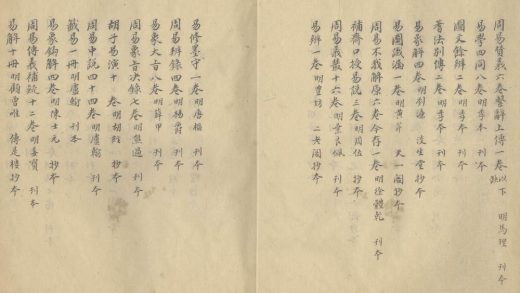 周易贊義六卷繫辭上傳一卷以下缺 明馬理 刊本
易學四同八卷明季本 刊本
圖文餘辨二卷明季本 刊本
蓍法別傳二卷明季本 刊本
易象解四卷明劉濂 淡生堂抄本
易圖識漏一卷明黃芹 天一閣抄本
周易不我解原六卷今存一卷明徐體乾 刊本
補齋口授易說三卷明周佐 抄本
周易義叢十六卷明葉良佩 刊本
易辨一卷明豐坊 二老閣抄本
易修墨守一卷明唐樞 刊本
周易辨錄四卷明楊爵 刊本
易象大旨八卷明薛甲 刊本
周易象旨決錄七卷明熊過 刊本
胡子易演十 卷明胡經 抄本
周易中說四十四卷明盧翰 刊本
籤易一冊明盧翰 刊本
易象鉤解四卷明陳士元 抄本
周易傳義補疑十二卷明姜寶 刊本
易解十冊明顧曾唯 傳是樓抄本